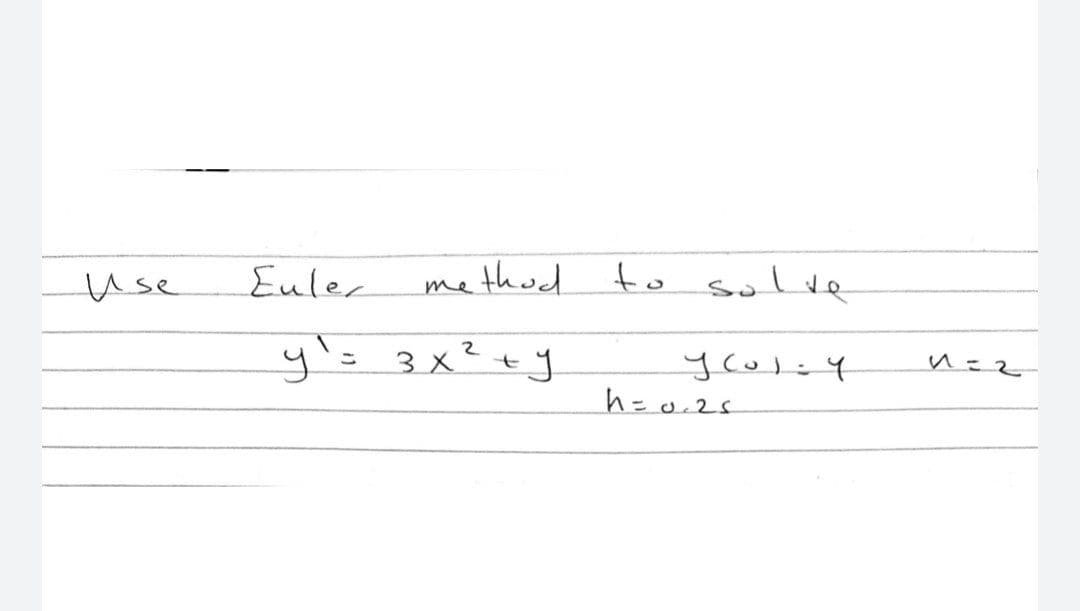 Use Euler method to solve
y' = 3x² + y y(0) = 4 n = 2
h = 0.25